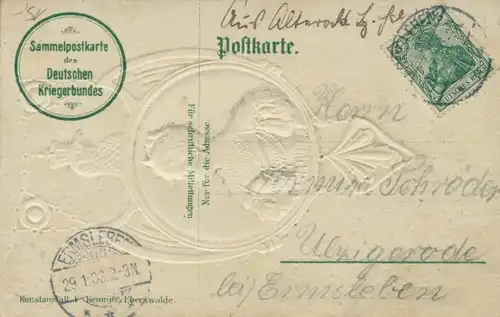 Aus Alterode
Postkarte.
Sammelpostkarte
des
Deutschen
Kriegerbundes
Für schriftliche Mitteilungen.
Nur für die Adresse.
Herrn
Schröder
Ulzigerode
bei Ermsleben
ERMSLEBEN
29.1.09.2-3N
Kunstanstalt Eberswalde.